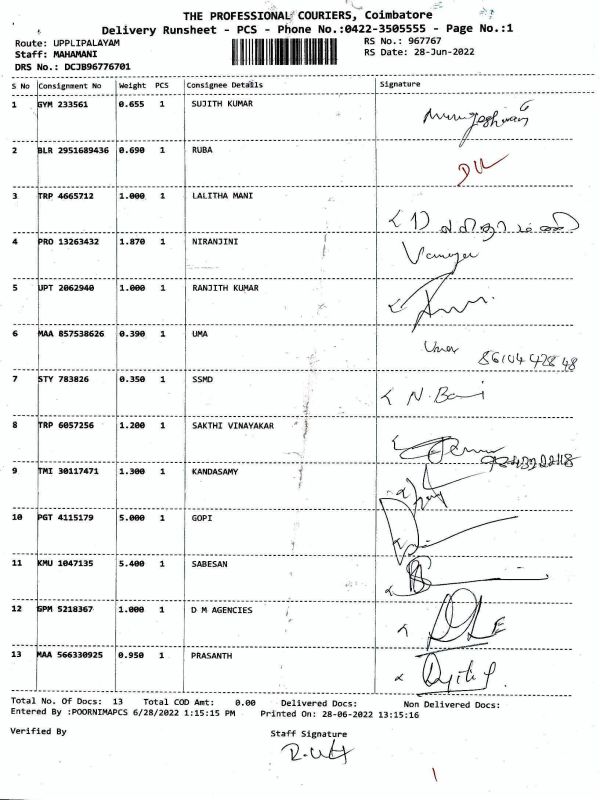 THE PROFESSIONAL COURIERS, Coimbatore
Delivery Runsheet - PCS - Phone No.:0422-3505555 - Page No.:1
Route: UPPLIPALAYAM RS No.: 967767
Staff: MAHAMANI RS Date: 28-Jun-2022
DRS No.: DCJB96776701
S No Consignment No Weight PCS Consignee Details Signature
1 GYM 233561 0.655 1 SUJITH KUMAR
2 BLR 2951689436 0.690 1 RUBA
3 TRP 4665712 1.000 1 LALITHA MANI
4 PRO 13263432 1.870 1 NIRANJINI
5 UPT 2062940 1.000 1 RANJITH KUMAR
6 MAA 857538626 0.390 1 UMA Uma
7 STY 783826 0.350 1 SSMD
8 TRP 6057256 1.200 1 SAKTHI VINAYAKAR
9 TMI 30117471 1.300 1 KANDASAMY
10 PGT 4115179 5.000 1 GOPI
11 KMU 1047135 5.400 1 SABESAN
12 GPM 5218367 1.000 1 D M AGENCIES
13 MAA 566330925 0.950 1 PRASANTH
Total No. Of Docs: 13 Total COD Amt: 0.00 Delivered Docs: Non Delivered Docs:
Entered By :POORNIMAPCS 6/28/2022 1:15:15 PM Printed On: 28-06-2022 13:15:16
Verified By Staff Signature